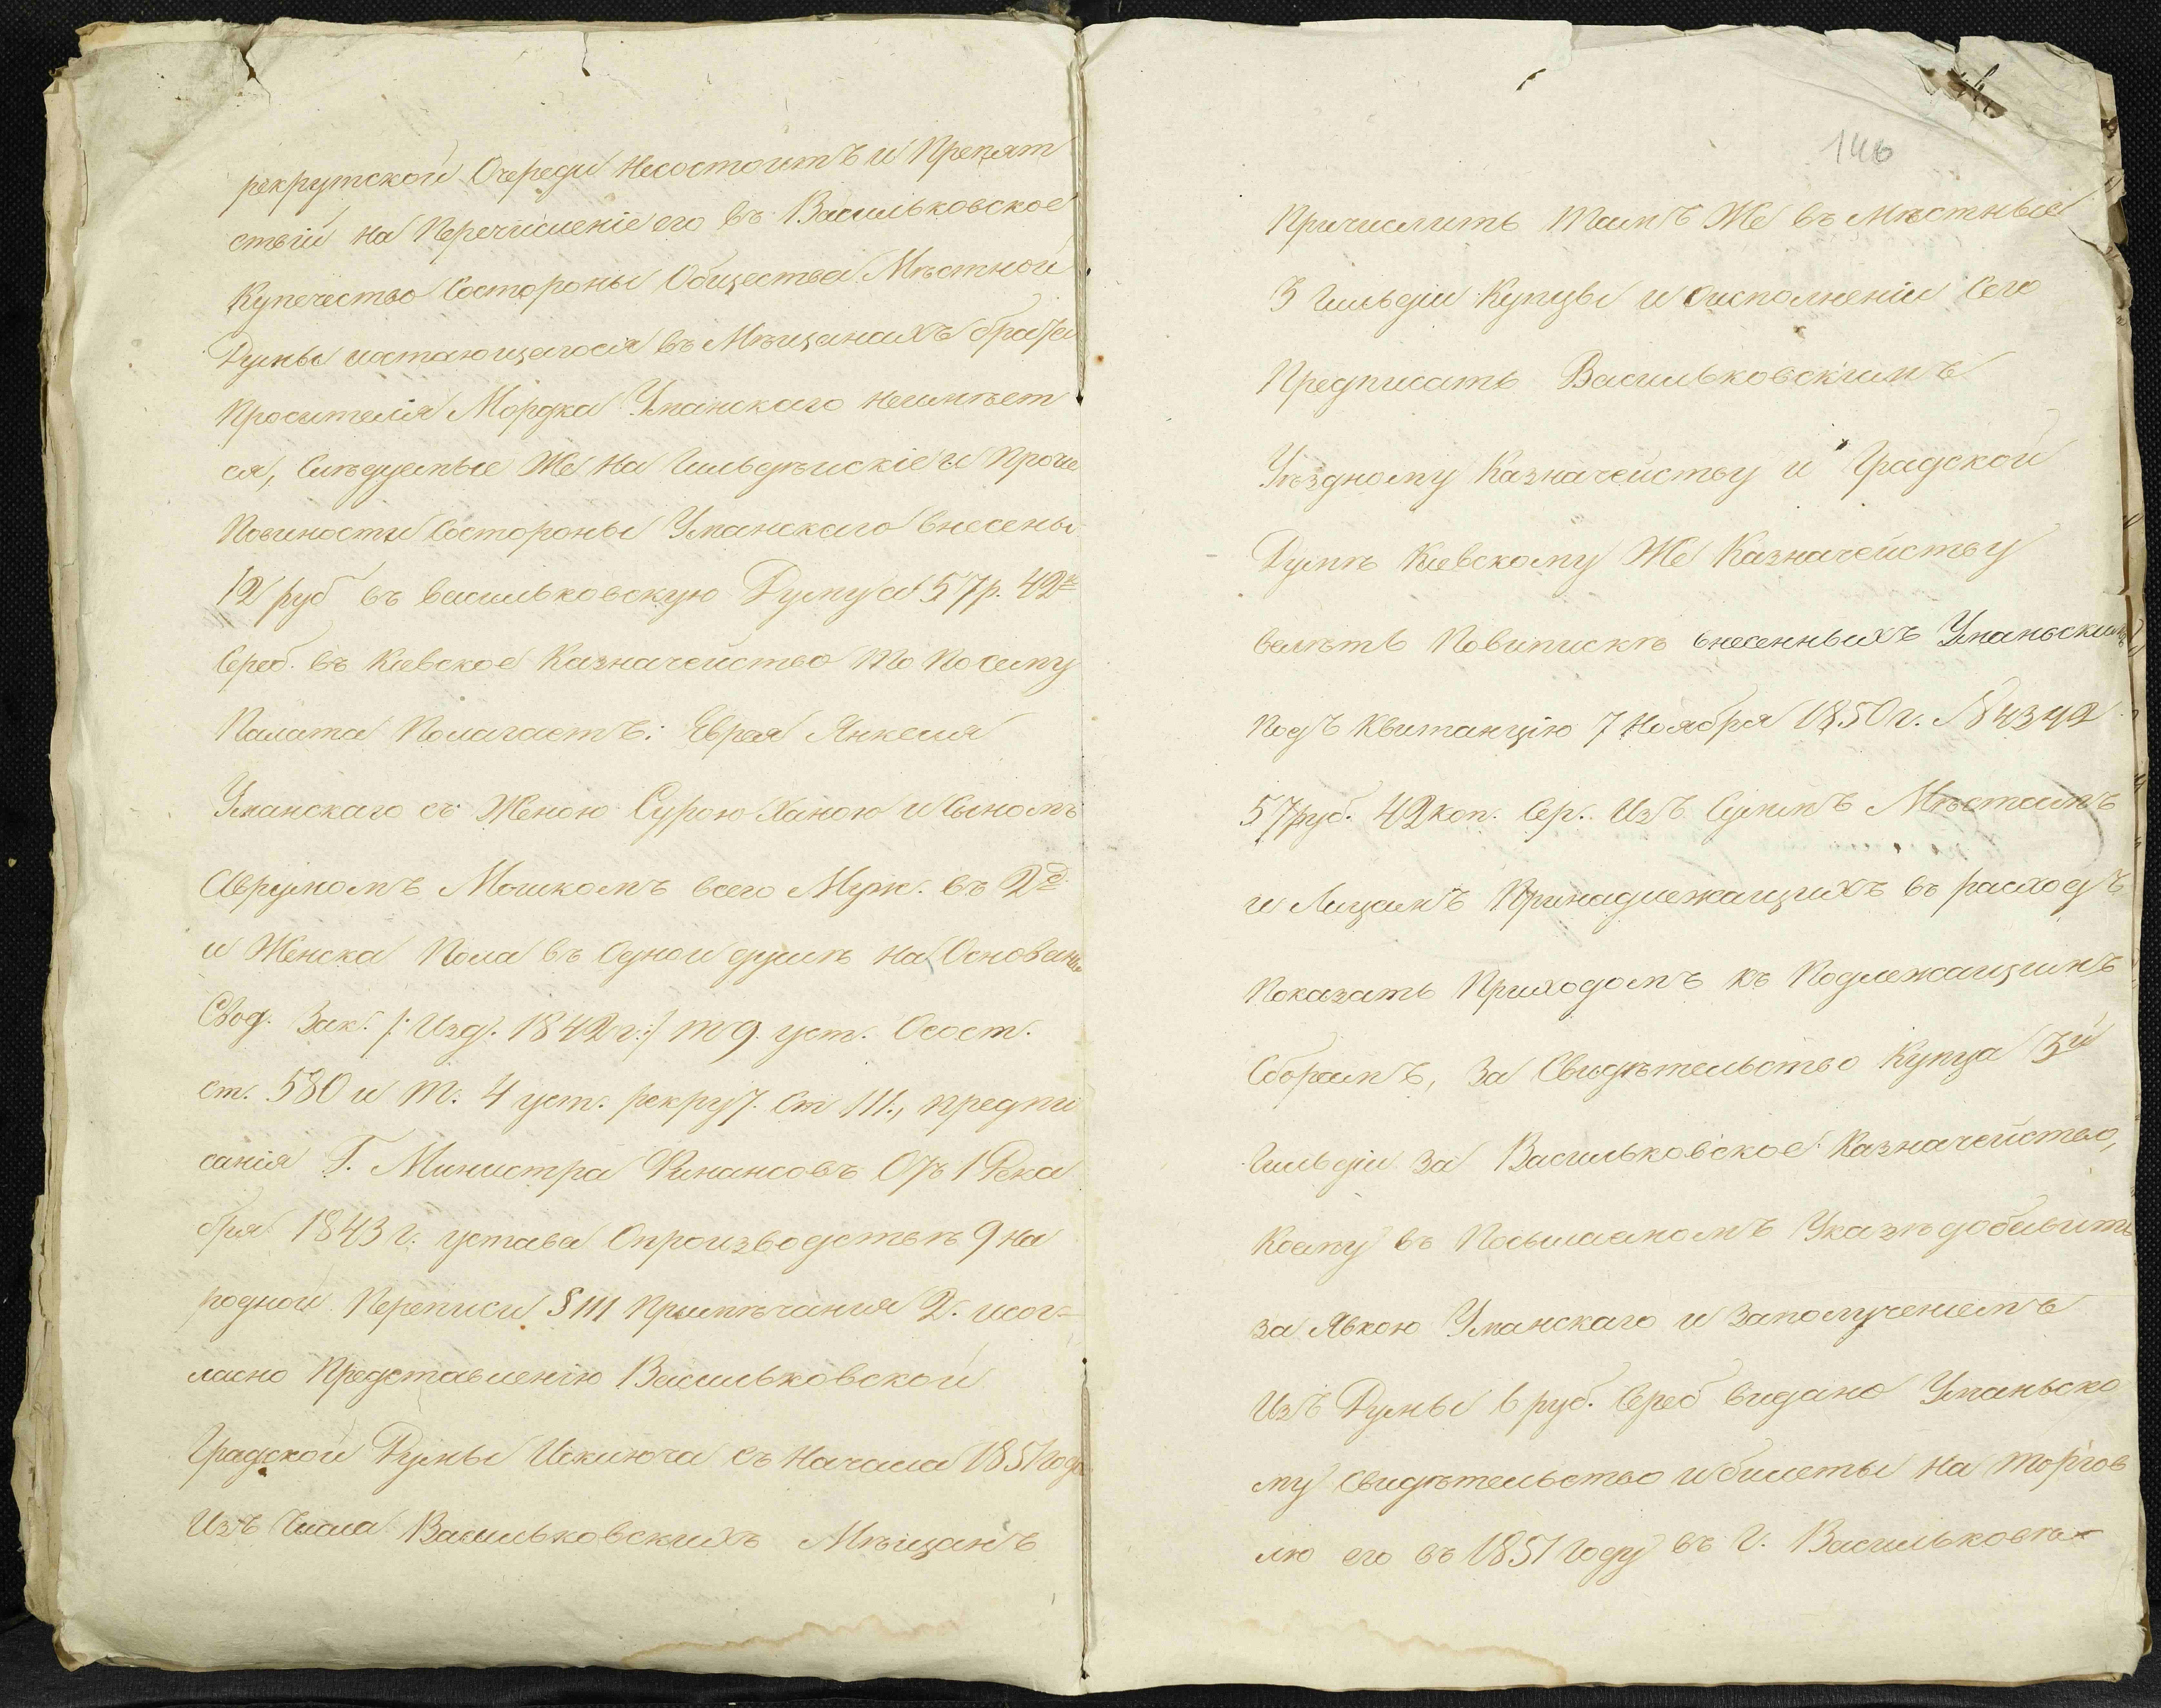 рекрутской Очереди несостоитъ и Препят
ствій на Перечисленіе его въ Васильковское
Купечество Состороны Общества Мѣстной
Думы иостающагося въ Мѣщанахъ брата
Просителя Мордка Уманскаго неимѣет
ся, Слѣдуемые Же на Гильдѣйскіе и Прочіе
Повиности Состороны Уманскаго внесены
12 руб въ васильковскую Думу а 57 р. 42 к
Сереб. въ Кіевское Казначейство То По сему
Палата Полагаетъ: Еврея Янкеля
Уманскаго съ Женою Сурою Ханою и Сыномъ
Аврумомъ Мошкомъ всего Муж. въ 2 д
и Женска Пола въ Одной душѣ на Основаніи
Свод. Зак. /: Изд. 1842 г :/ т 9. уст. Осост.
ст. 580 и т. 4 уст. рекрут. Ст 111., предпи
санія Г. Министра Финансовъ Отъ 1 Дека
бря 1843 г. устава Опроизводствѣ 9 на
родной Переписи § 111 Примѣчанія 2. исог-
ласно Представленію Васильковской
Градской Думы Исключа съ Начала 1851 года
Изъ Числа Васильковскихъ Мѣщанъ
146
Причислить Тамъ Же въ Мѣстные
3 Гильдіи Купцы и Оисполненіи Сего
Предписать Васильковскимъ
Уѣздному Казначейству и Градской
Думѣ Кіевскому Же Казначейству
велѣть Повыпискѣ внесенныхъ Уманьскимъ
Подъ Квитанцію 7 Ноября 1850 г. N 4342
57 руб. 42 коп. Сер. Изъ Суммъ Мѣстамъ
и Лицамъ Принадлежащихъ въ расходъ
Показать Приходомъ къ Подлежащимъ
Сборамъ, За Свидѣтельство Купца 3й
Гильдіи За Васильковское Казначейство,
Коему въ Посылаемомъ Указѣ добавить
за Явкою Уманскаго и Заполученіемъ
Изъ Думы 6 руб. Сереб видано Уманьско
му Свидѣтельство ибилеты на торгов
лю его въ 1851 Году въ Г. Васильковѣ